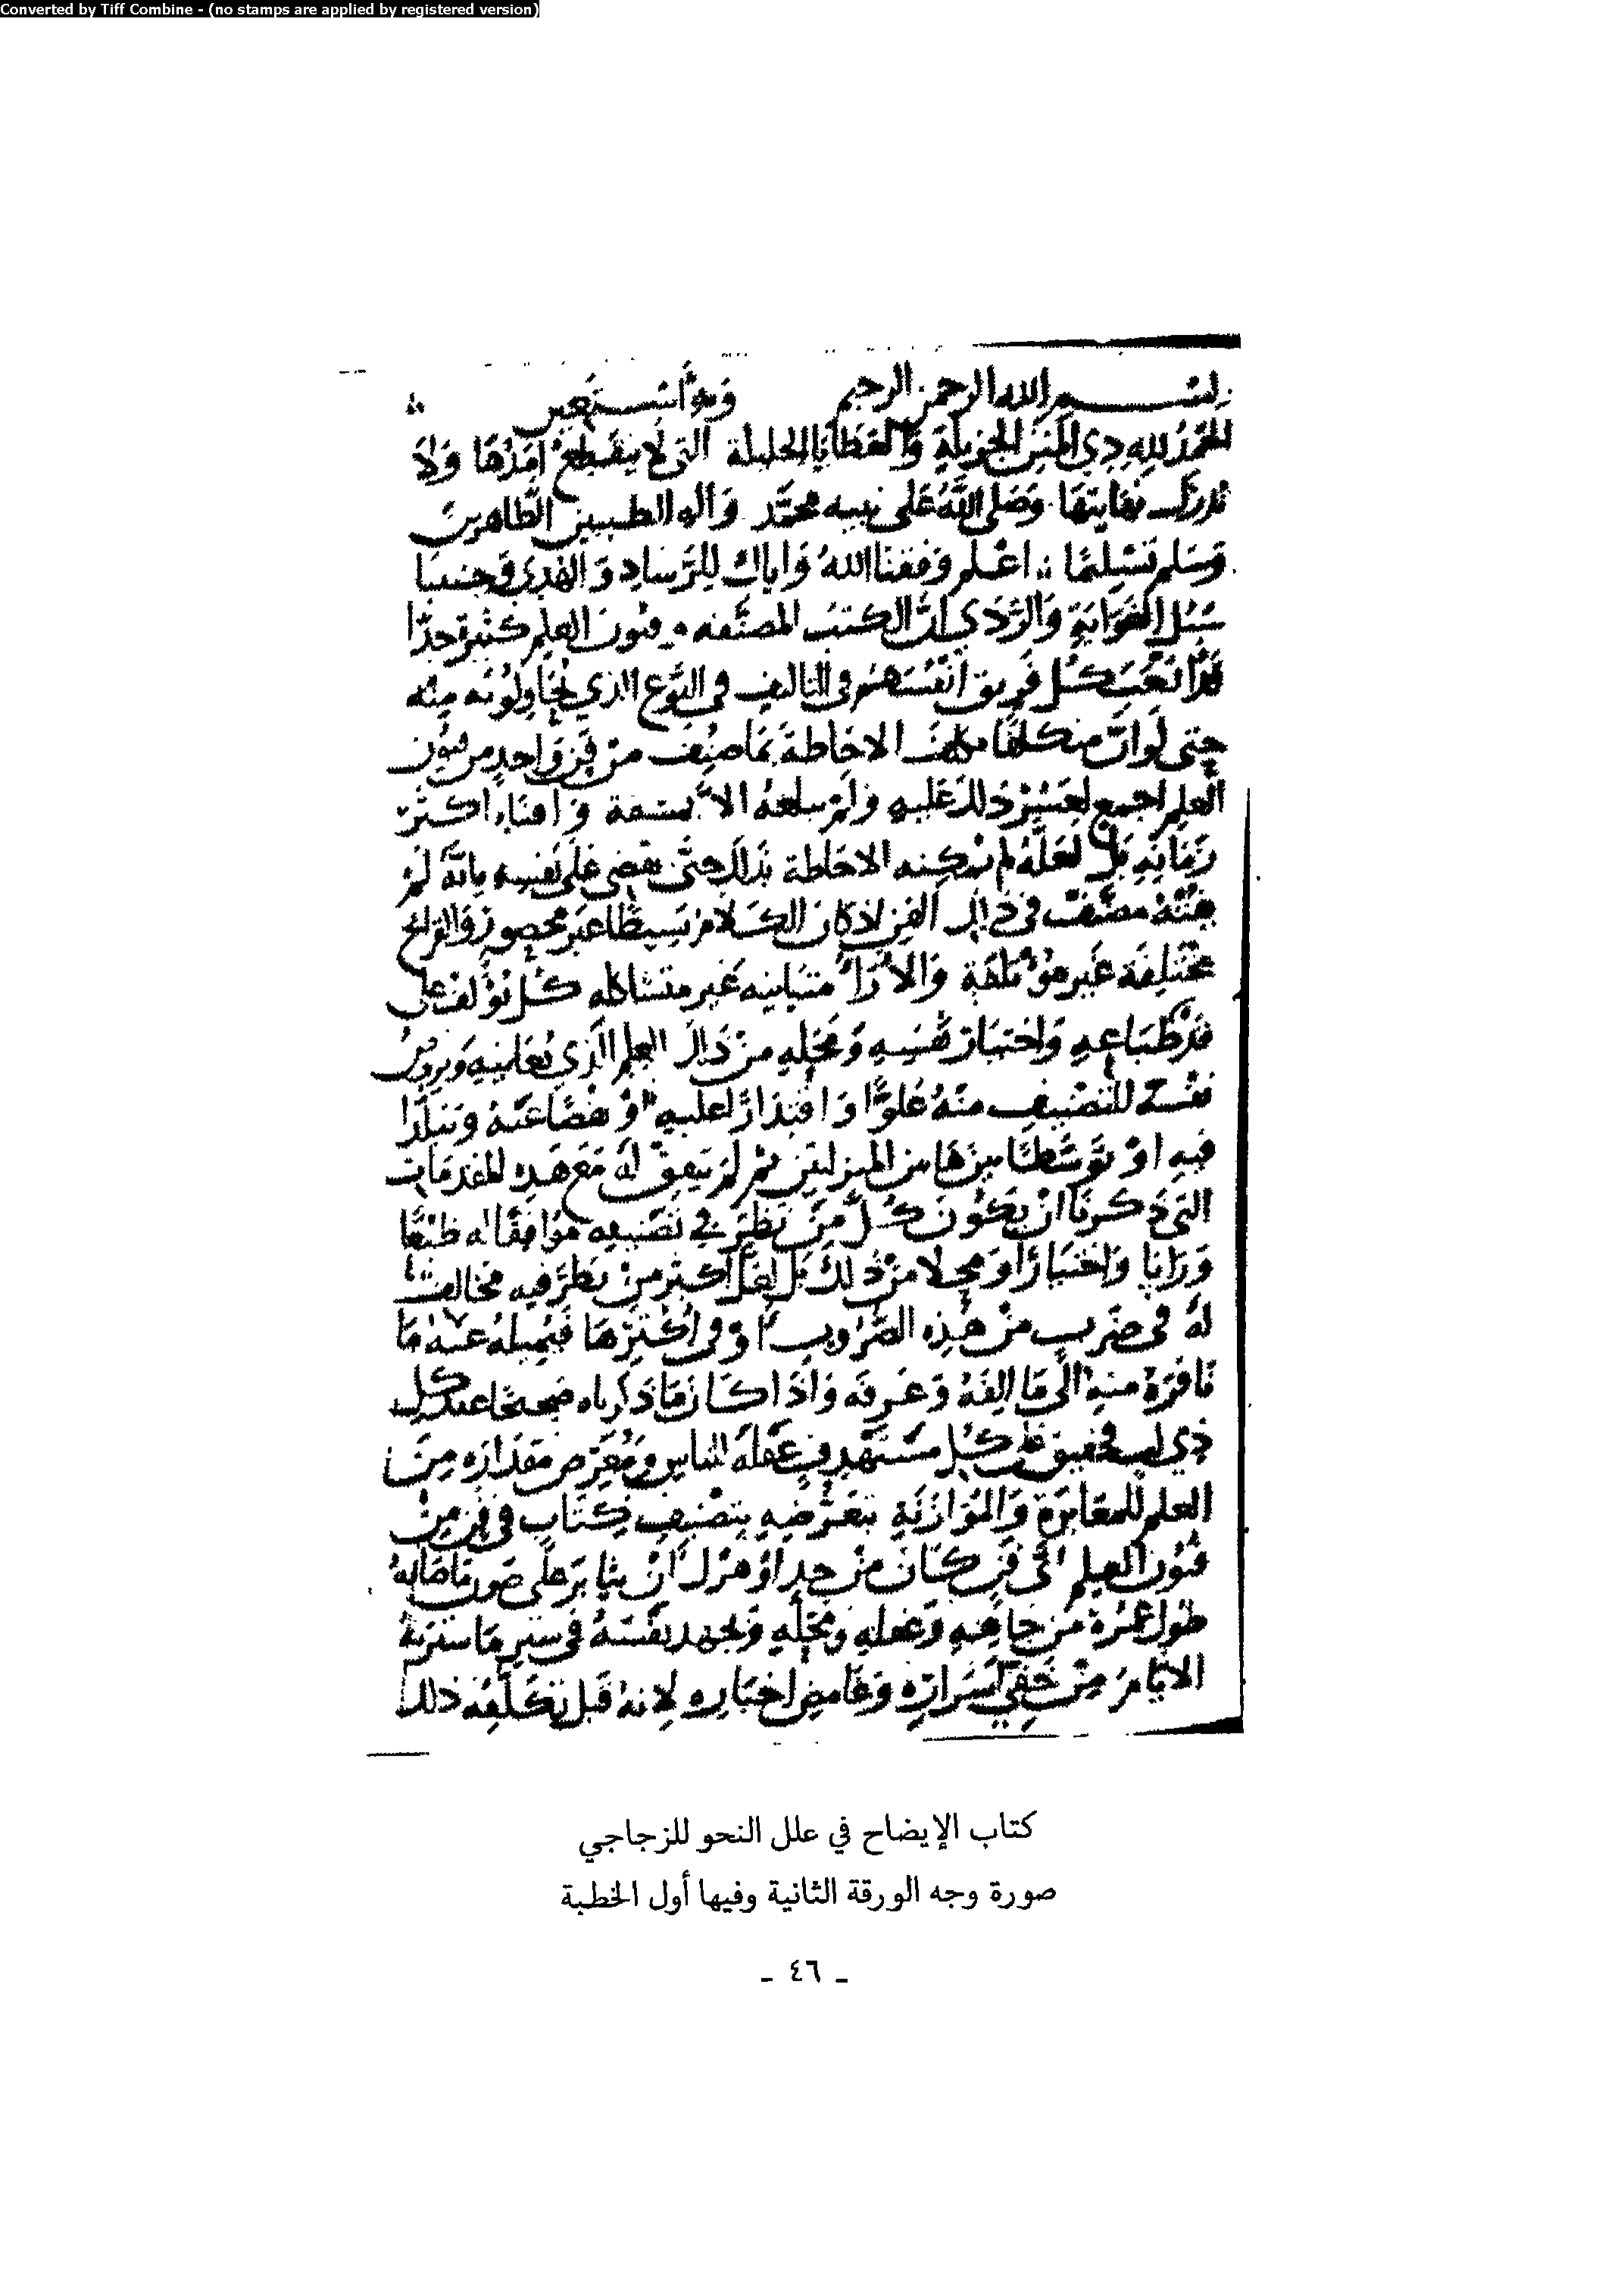 Converted by Tiff Combine - (no stamps are applied by registered version)
بسم الله الرحمن الرحيم وبه أستعين
الحمد لله ذي المنن الجزيلة والعطايا الجليلة التي لا ينقطع أمدها ولا
تدرك نهايتها وصلى الله على نبيه محمد وآله الطيبين الطاهرين
وسلم تسليما اعلم وفقنا الله واياك للرشاد والهدى وجنبنا
سبل الغواية والردى ان الكتب المصنفه في فنون العلم كثيرة جدا
قد اتعب كل فريق انفسهم في التاليف في النوع الذي يحاولونه منه
حتى لو ان متكلفا تكلف الاحاطة بما صنف من فن واحد من فنون
العلم اجمع لعسر ذلك عليه ولم يبلغه الا بمشقة وافناء اكثر
زمانه بل لعله لم يمكنه الاحاطة بذلك حتى يقضي على نفسه بانه لم
يفته مصنف في ذلك الفن اذ كان الكلام بسيطا غير محصور والقرائح
مختلفة غير مؤتلفة والاراء متباينه غير متشاكله كل يؤلف على
قدر طباعه واختيار نفسه ومحله من ذلك العلم الذي يعانيه ويروض
نفسه للتصنيف منه علوا واقتدارا عليه او نقصا عنه وتبلدا
فيه او توسطا بين هاتين المنزلتين ثم لم يتفق له مع هذه المقدمات
التي ذكرنا ان يكون كل من نظر في تصنيفه موافقا له طبعا
ورايا واختيارا ومحلا من ذلك بل لعل اكثر من نظر فيه مخالف
له في ضرب من هذه الضروب او في اكثرها فيميله عنه ما
نافره منه الى ما الفه وعرفه واذا كان ما ذكرناه صحيحا عند كل
ذي لب فحقيق على كل مستهدف عقله للناس ومعرض مقداره من
العلم للمعايرة والموازنة بتعرضه بتصنيف كتاب في فن من
فنون العلم اي فن كان من جد او هزل ان يثابر على صون ما صانه
طول عمره من جاهه وعقله ومحله ويجهد نفسه في ستر ما سترته
الايام من خفي اسراره وغامض اخباره لانه قبل تكلفه ذلك
كتاب الإيضاح في علل النحو للزجاجي
صورة وجه الورقة الثانية وفيها أول الخطبة
- ٤٦ -